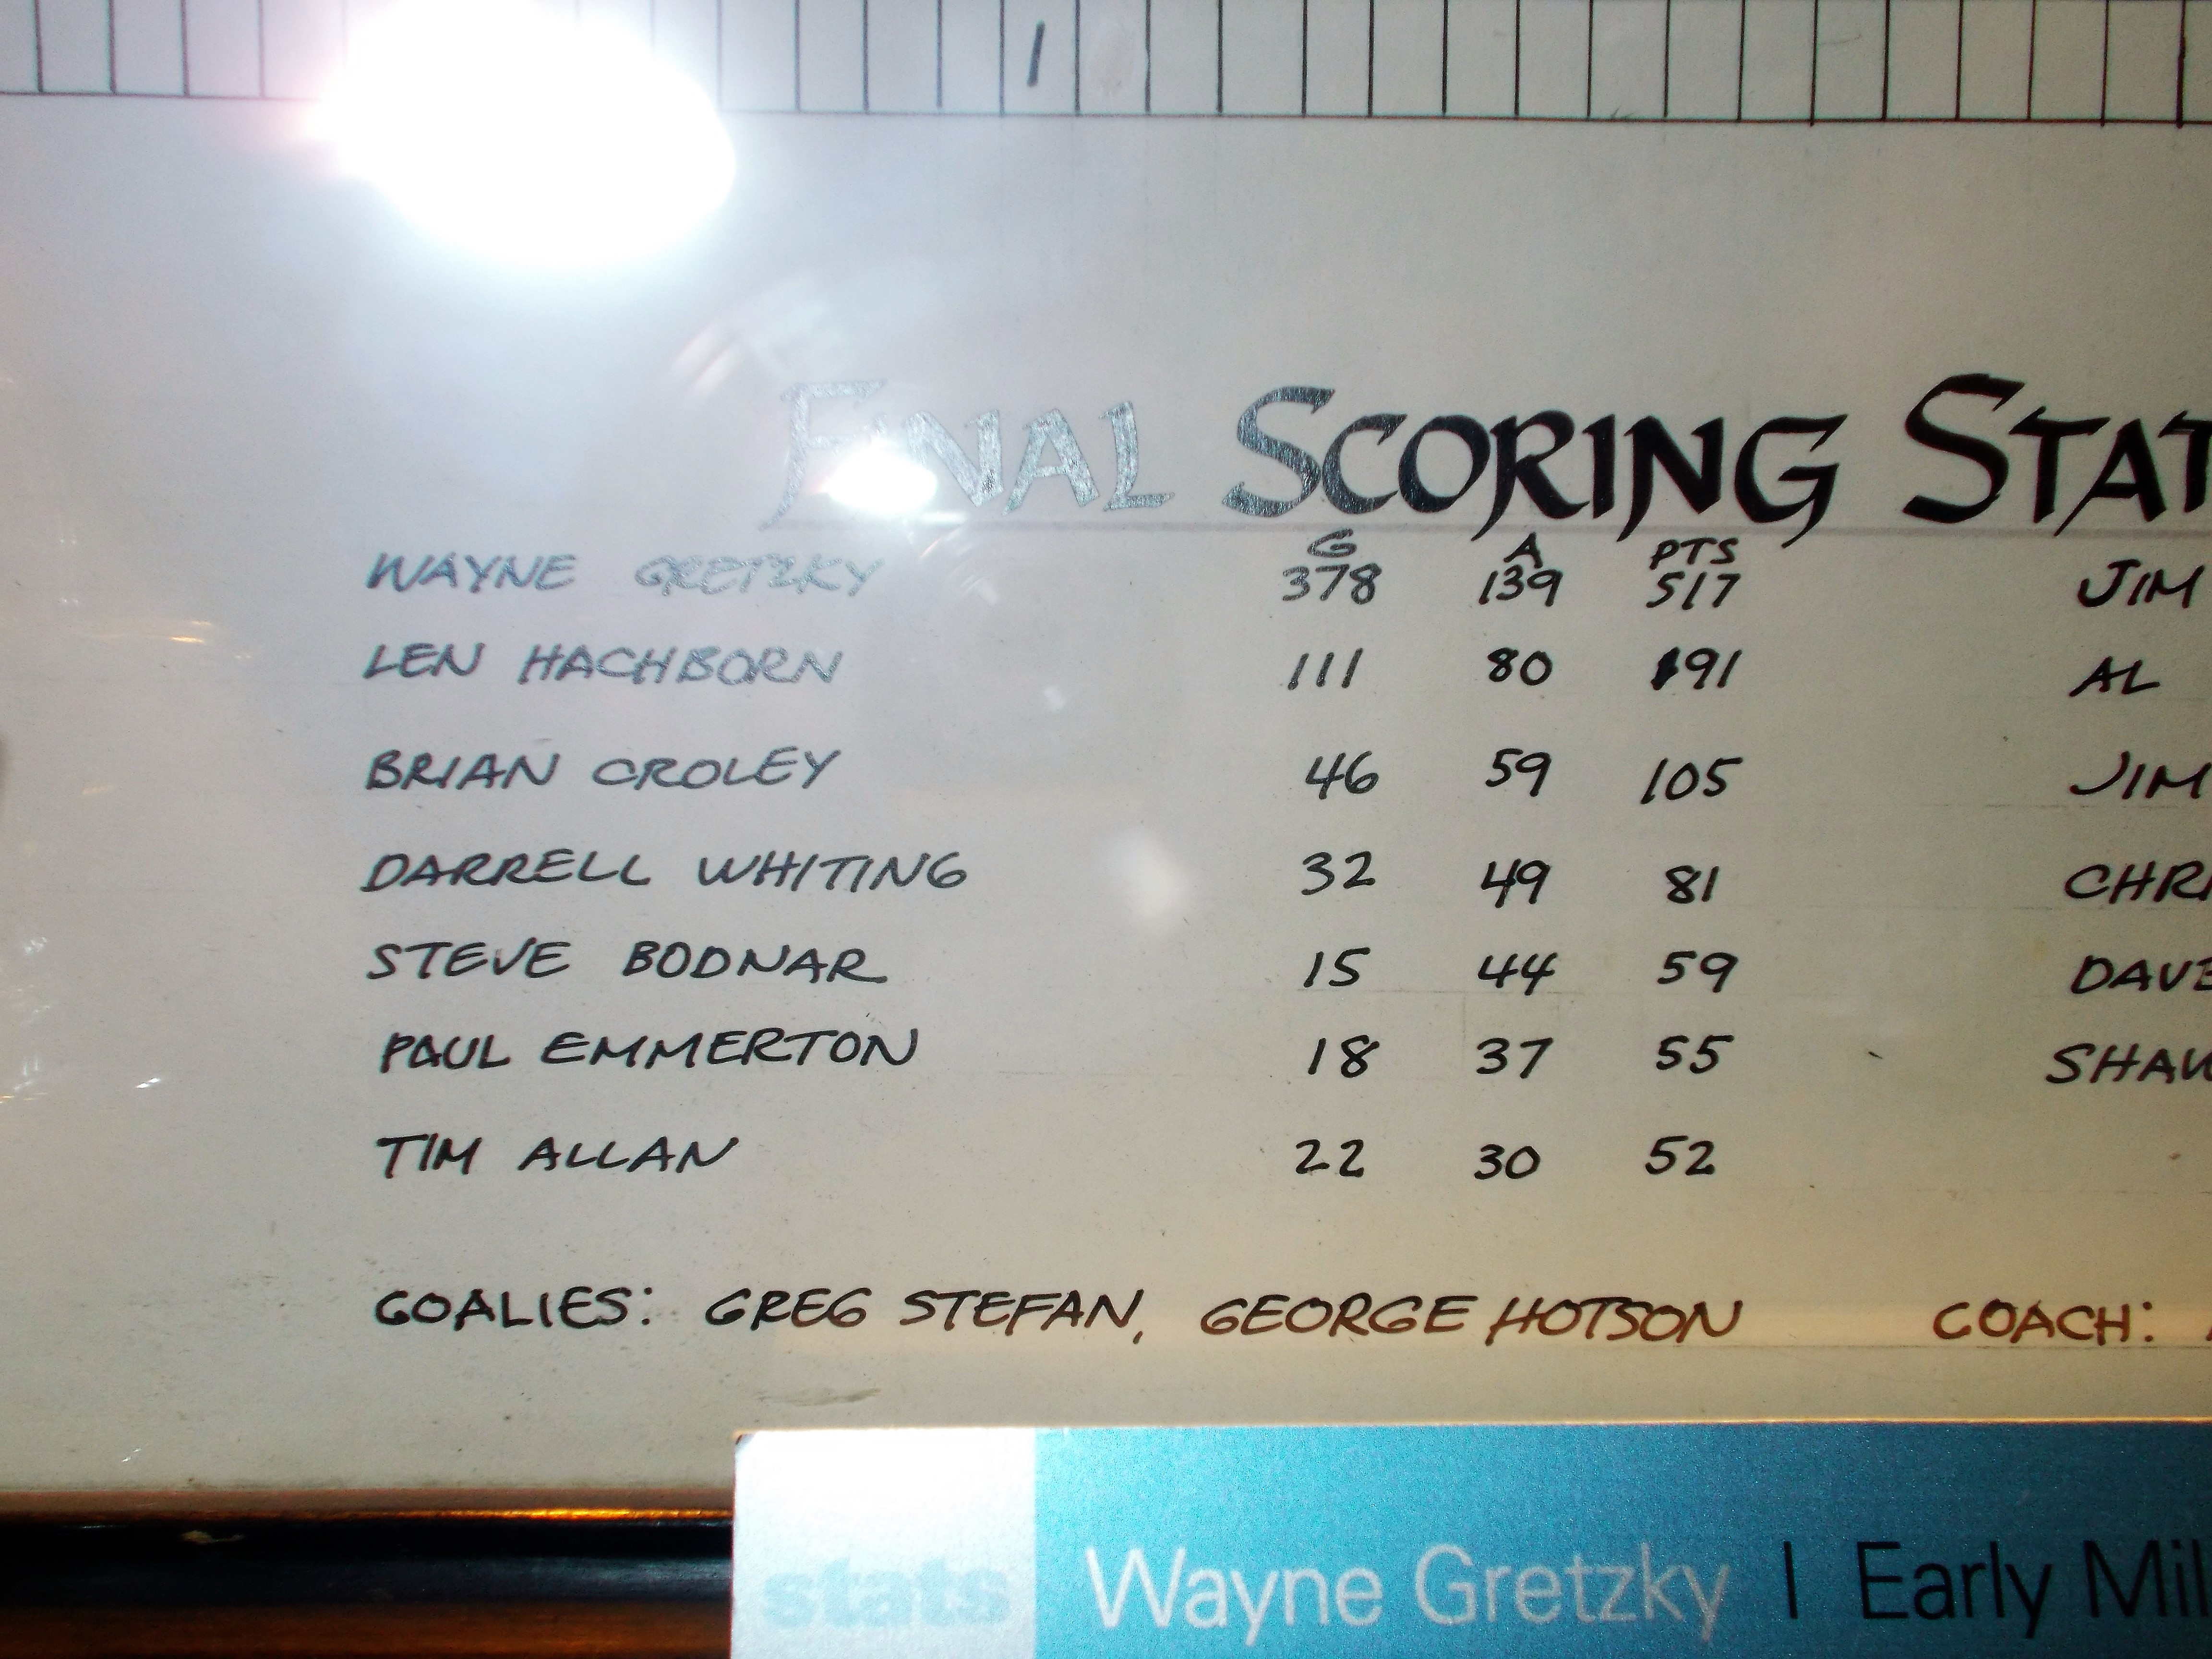 1
FINAL SCORING STAT
G A PTS
WAYNE GRETZKY 378 139 517 JIM
LEN HACHBORN 111 80 191 AL
BRIAN CROLEY 46 59 105 JIM
DARRELL WHITING 32 49 81 CHRI
STEVE BODNAR 15 44 59 DAVE
PAUL EMMERTON 18 37 55 SHAW
TIM ALLAN 22 30 52
GOALIES: GREG STEFAN, GEORGE HOTSON COACH:
stats Wayne Gretzky | Early Mil